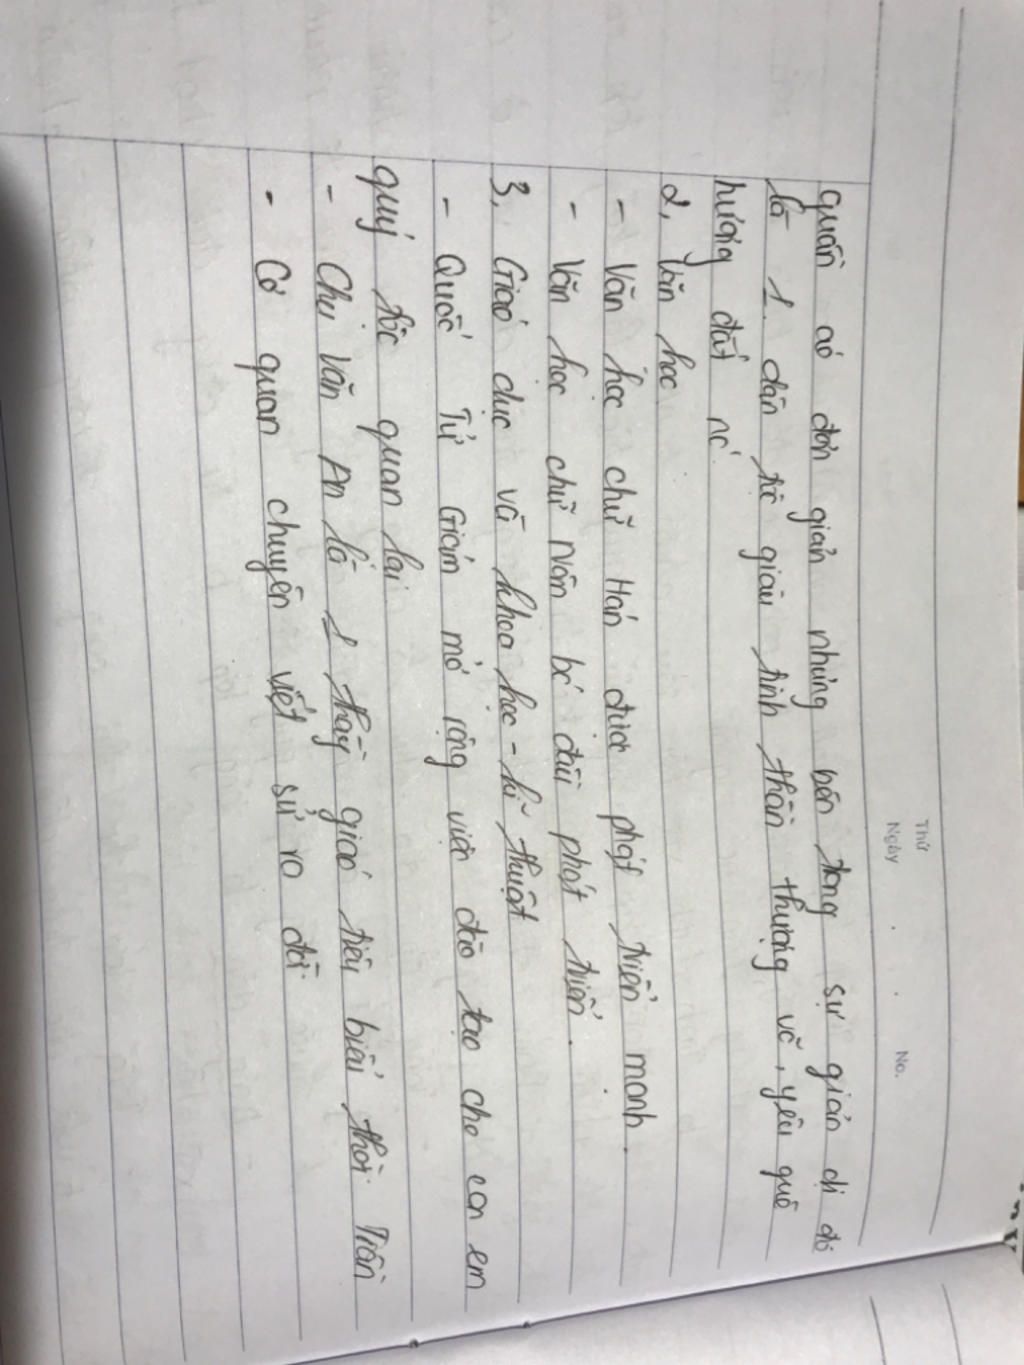 Thứ
Ngày . . No.
quần áo đơn giản nhưng bên trong sự giản dị đó
là 1 dân tộc giàu tinh thần thượng võ, yêu quê
hương đất nc'.
2, Văn học
- Văn học chữ Hán được phát triển mạnh.
- Văn học chữ Nôm bc' đầu phát triển.
3, Giáo dục và khoa học - kĩ thuật
- Quốc Tử Giám mở rộng việc đào tạo cho con em
quý tộc quan lại
- Chu Văn An là 1 thầy giáo tiêu biểu thời Trần
- Cơ quan chuyên viết sử ra đời.